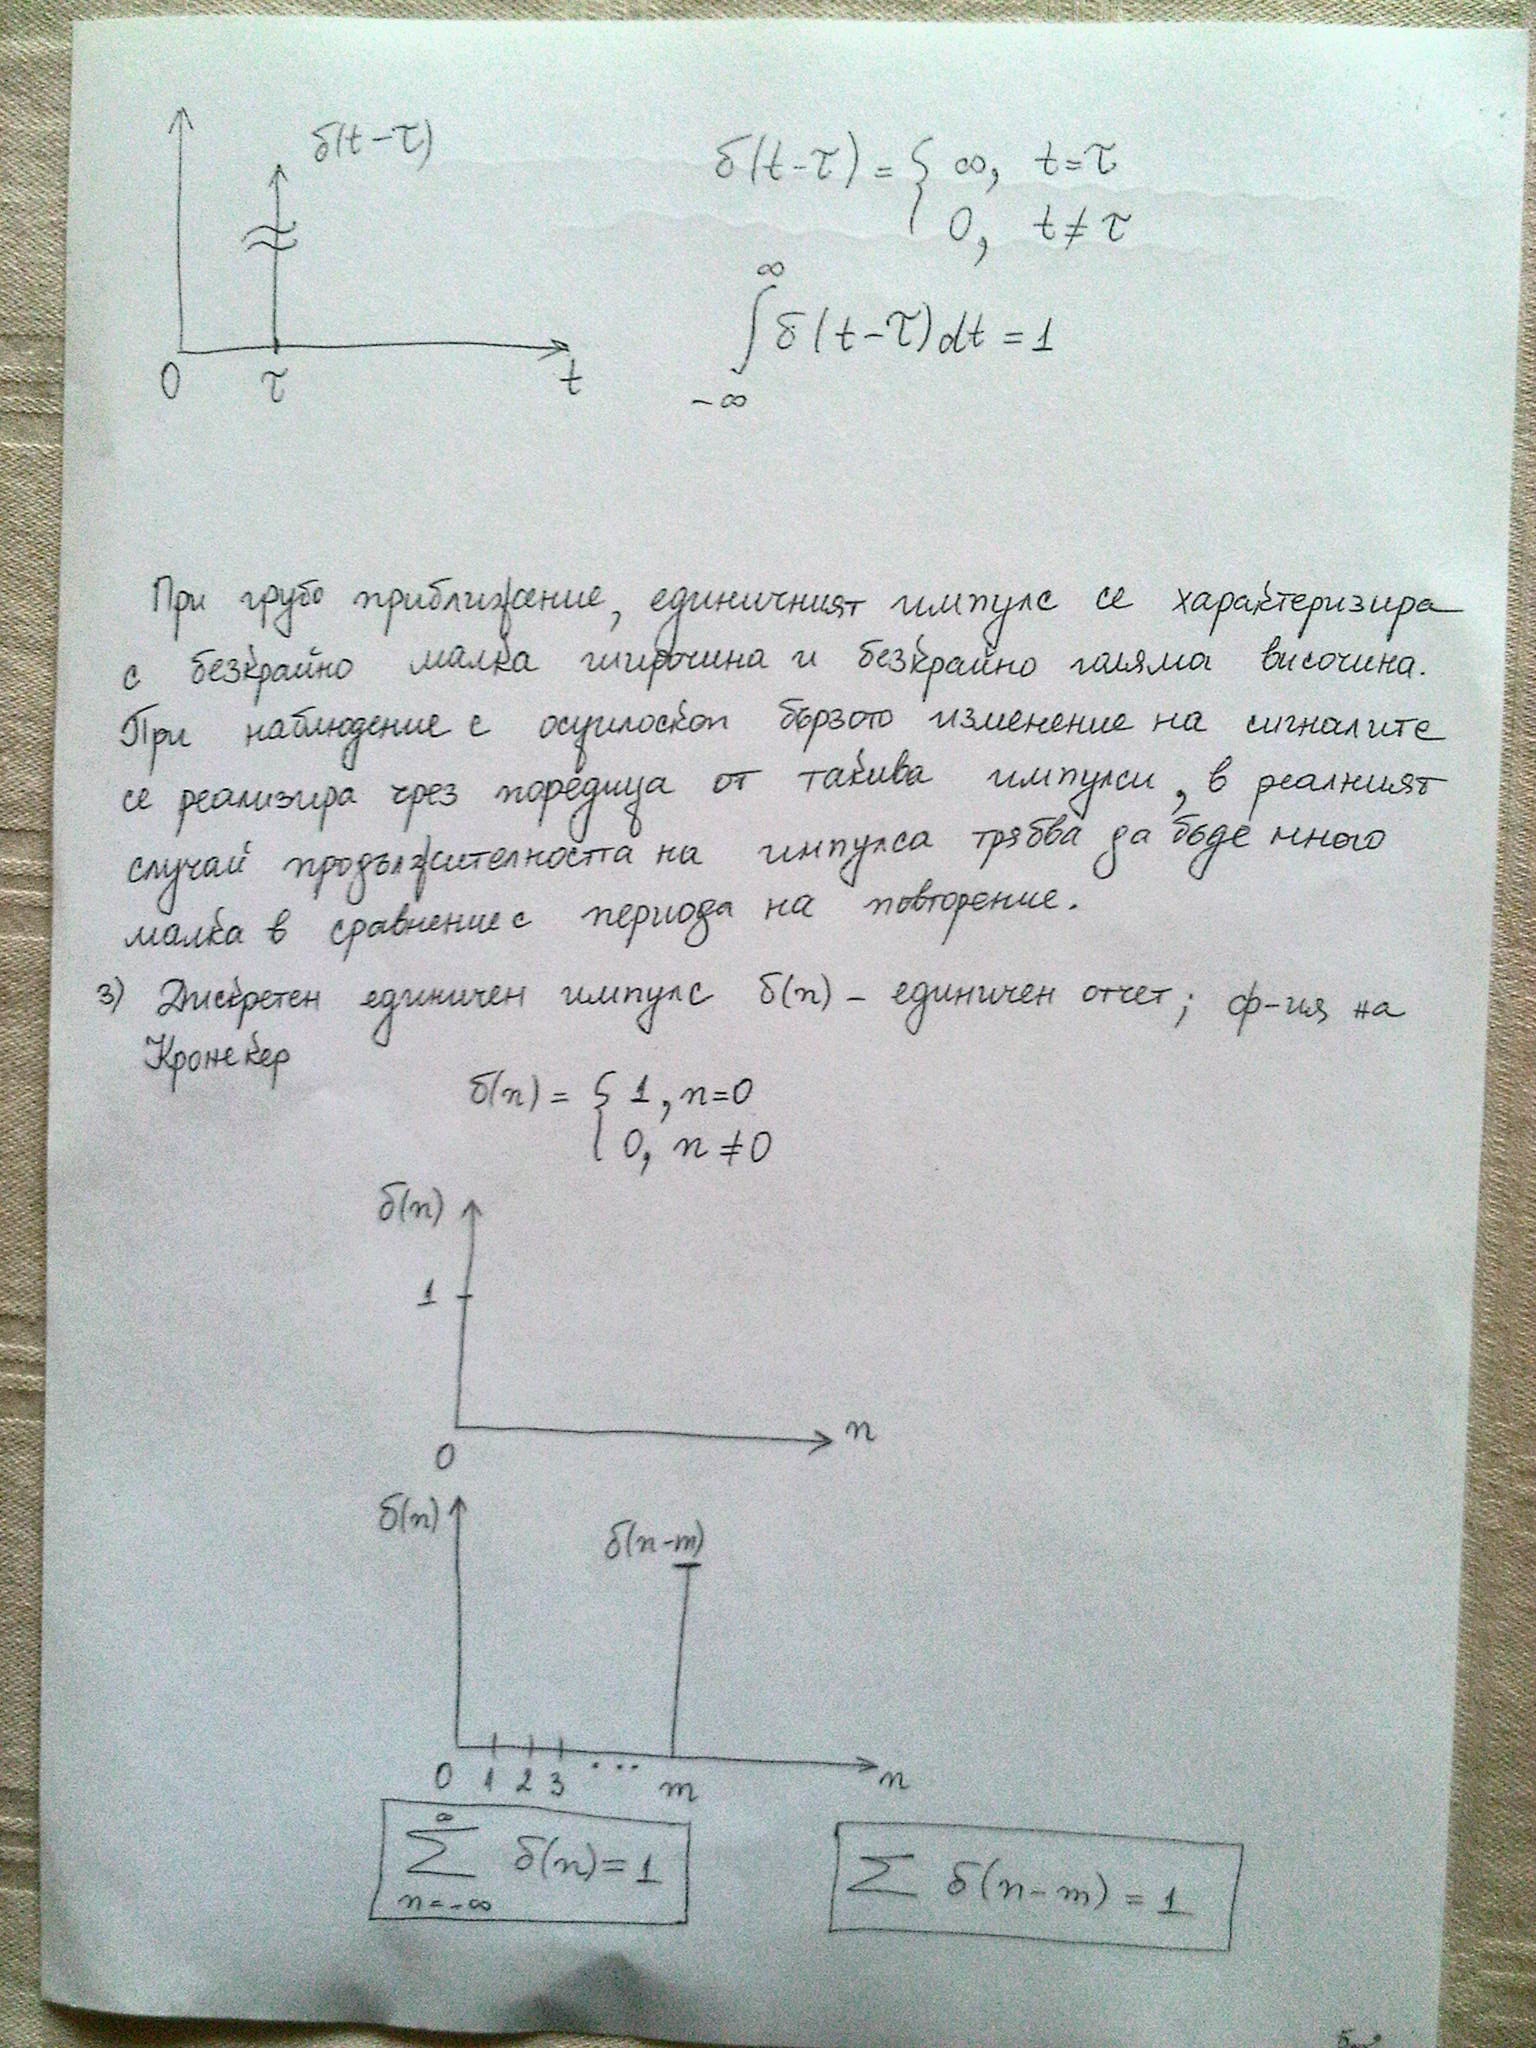 δ(t-τ)
δ(t-τ) = { ∞, t=τ
0, t≠τ
∞
∫ δ(t-τ)dt = 1
-∞
0 τ t
При грубо приближение, единичният импулс се характеризира
с безкрайно малка широчина и безкрайно голяма височина.
При наблюдение с осцилоскоп бързото изменение на сигналите
се реализира чрез поредица от такива импулси, в реалният
случай продължителността на импулса трябва да бъде много
малка в сравнение с периода на повторение.
3) Дискретен единичен импулс δ(n) - единичен отчет; ф-ия на
Кронекер
δ(n) = { 1, n=0
0, n≠0
δ(n)
1
0 n
δ(n) δ(n-m)
0 1 2 3 ... m n
∞
∑ δ(n)=1
n=-∞
∑ δ(n-m) = 1